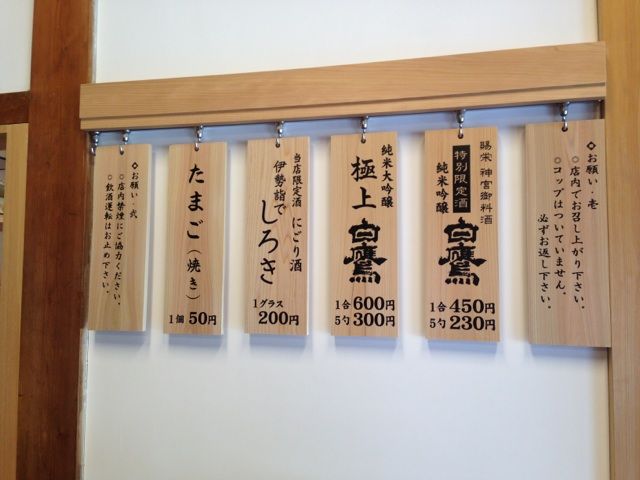 ◇お願い・壱
○店内でお召し上がり下さい。
○コップはついていません。
必ずお返し下さい。
賜栄 神宮御料酒
特別限定酒
純米吟醸
白鷹
1合450円
5勺230円
純米大吟醸
極上
白鷹
1合600円
5勺300円
当店限定酒 にごり酒
伊勢詣で
しろき
1グラス
200円
たまご(焼き)
1個50円
◇お願い・弐
○店内禁煙にご協力ください。
○飲酒運転はお止め下さい。